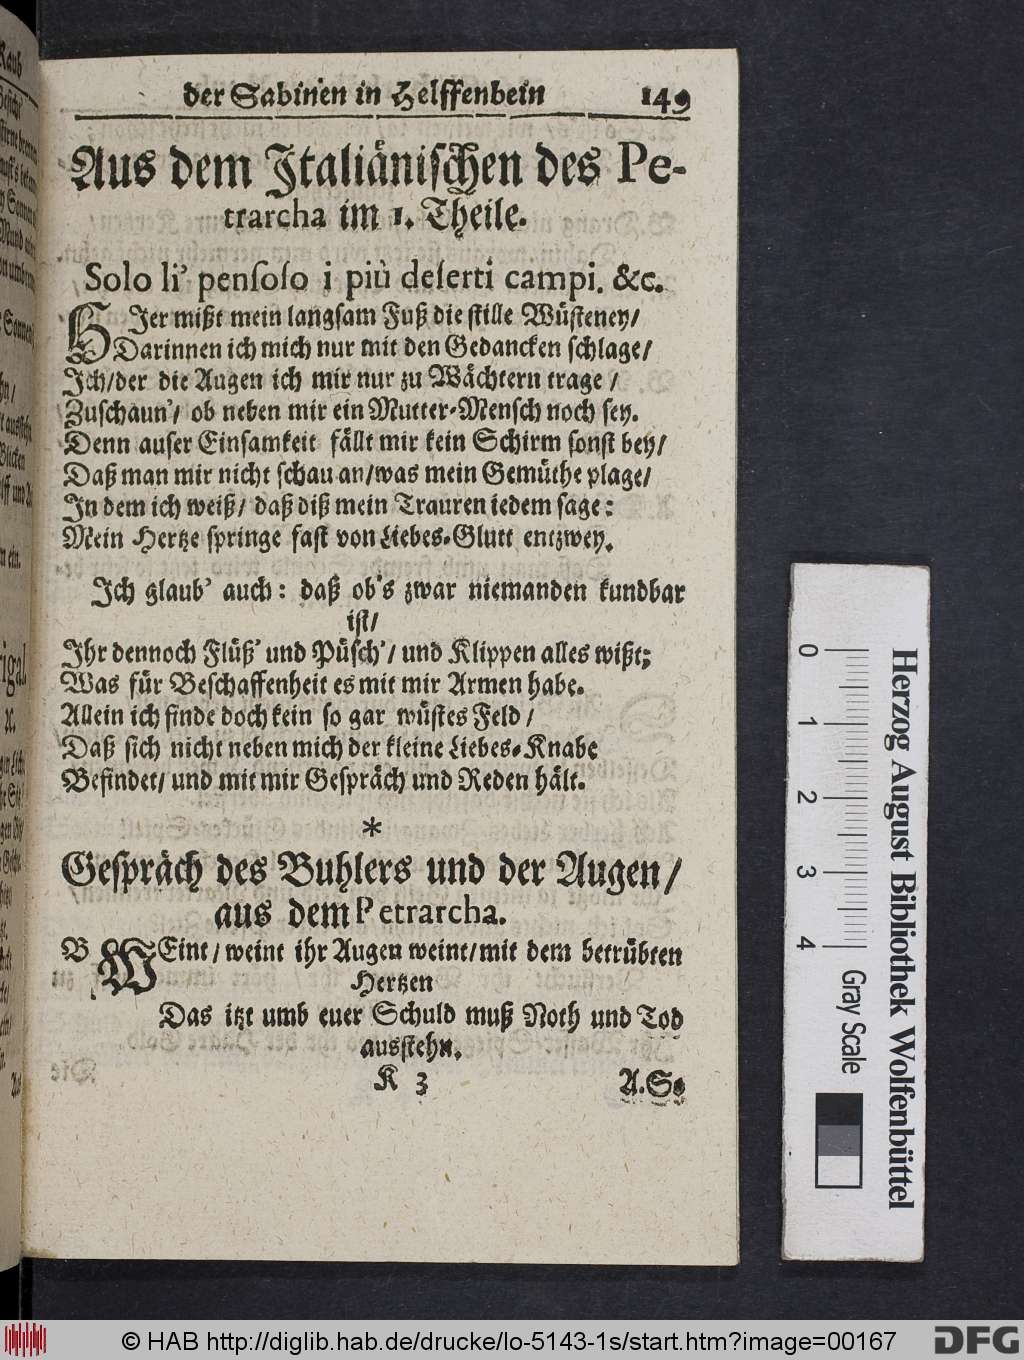 der Sabinen in Helffenbein 149
Aus dem Italiänischen des Pe-
trarcha im 1. Theile.
Solo li' penſoſo i più deſerti campi. &c.
HJer mißt mein langsam Fuß die stille Wüsteney/
Darinnen ich mich nur mit den Gedancken schlage/
Jch/der die Augen ich mir nur zu Wächtern trage /
Zuschaun'/ ob neben mir ein Mutter-Mensch noch sey.
Denn auser Einsamkeit fällt mir kein Schirm sonst bey/
Daß man mir nicht schau an/was mein Gemüthe plage/
Jn dem ich weiß/ daß diß mein Trauren iedem sage:
Mein Hertze springe fast von Liebes-Glutt entzwey.
Jch glaub' auch: daß ob's zwar niemanden kundbar
ist/
Jhr dennoch Flüß' und Püsch'/ und Klippen alles wißt;
Was für Beschaffenheit es mit mir Armen habe.
Allein ich finde doch kein so gar wüstes Feld /
Daß sich nicht neben mich der kleine Liebes-Knabe
Befindet/ und mit mir Gespräch und Reden hält.
*
Gespräch des Buhlers und der Augen/
aus dem Petrarcha.
B WEint/weint ihr Augen weint/mit dem betrübten
Hertzen
Das itzt umb euer Schuld muß Noth und Tod
ausstehn.
K 3 A. So
0 1 2 3 4
Gray Scale
Herzog August Bibliothek Wolfenbüttel
© HAB http://diglib.hab.de/drucke/lo-5143-1s/start.htm?image=00167
DFG